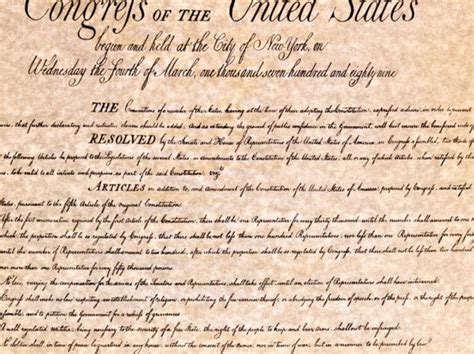 Congress OF THE United States
begun and held at the City of New York, on
Wednesday the Fourth of March, one thousand seven hundred and eighty nine
THE Conventions of a number of the States, having at the time of their adopting the Constitution, expressed a desire, in order to prevent
that further declaratory and restrictive clauses should be added. And as extending the ground of public confidence in the Government, will best ensure the
RESOLVED by the Senate and House of Representatives of the United States of America, in Congress assembled, two
the following Articles be proposed to the Legislatures of the several States, as amendments to the Constitution of the United States, all or any of which Articles, when ratified by
to be valid to all intents and purposes, as part of the said Constitution. vizt
ARTICLES in addition to, and amendment of the Constitution of the United States of America, proposed by Congress, and ratified
States, pursuant to the fifth Article of the original Constitution.
After the first enumeration required by the first Article of the Constitution, there shall be one Representative for every thirty thousand, until the number shall amount to one
which, the proportion shall be so regulated by Congress, that there shall be not less than one hundred Representatives, nor less than one Representative for every forty
until the number of Representatives shall amount to two hundred, after which, the proportion shall be so regulated by Congress, that there shall not be less than two hundred
nor more than one Representative for every fifty thousand persons.
No law, varying the compensation for the services of the Senators and Representatives, shall take effect, until an election of Representatives shall have intervened.
Congress shall make no law respecting an establishment of religion, or prohibiting the free exercise thereof; or abridging the freedom of speech, or of the press; or the right of the
and to petition the Government for a redress of grievances.
A well regulated Militia, being necessary to the security of a free State, the right of the people to keep and bear Arms, shall not be infringed.
No Soldier shall, in time of peace be quartered in any house, without the consent of the Owner, nor in time of war, but in a manner to be prescribed by law.